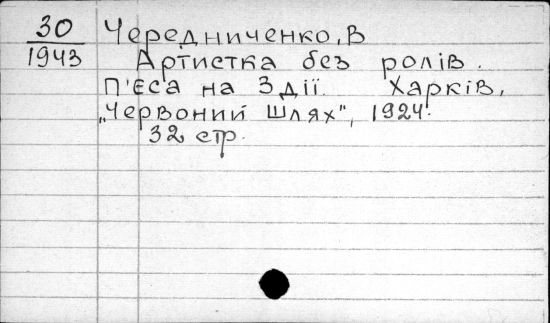 30
1943
Чередниченко, В
Артистка без ролів.
П'єса на 3 дії. Харків,
„Червоний Шлях", 1924.
32 стр.